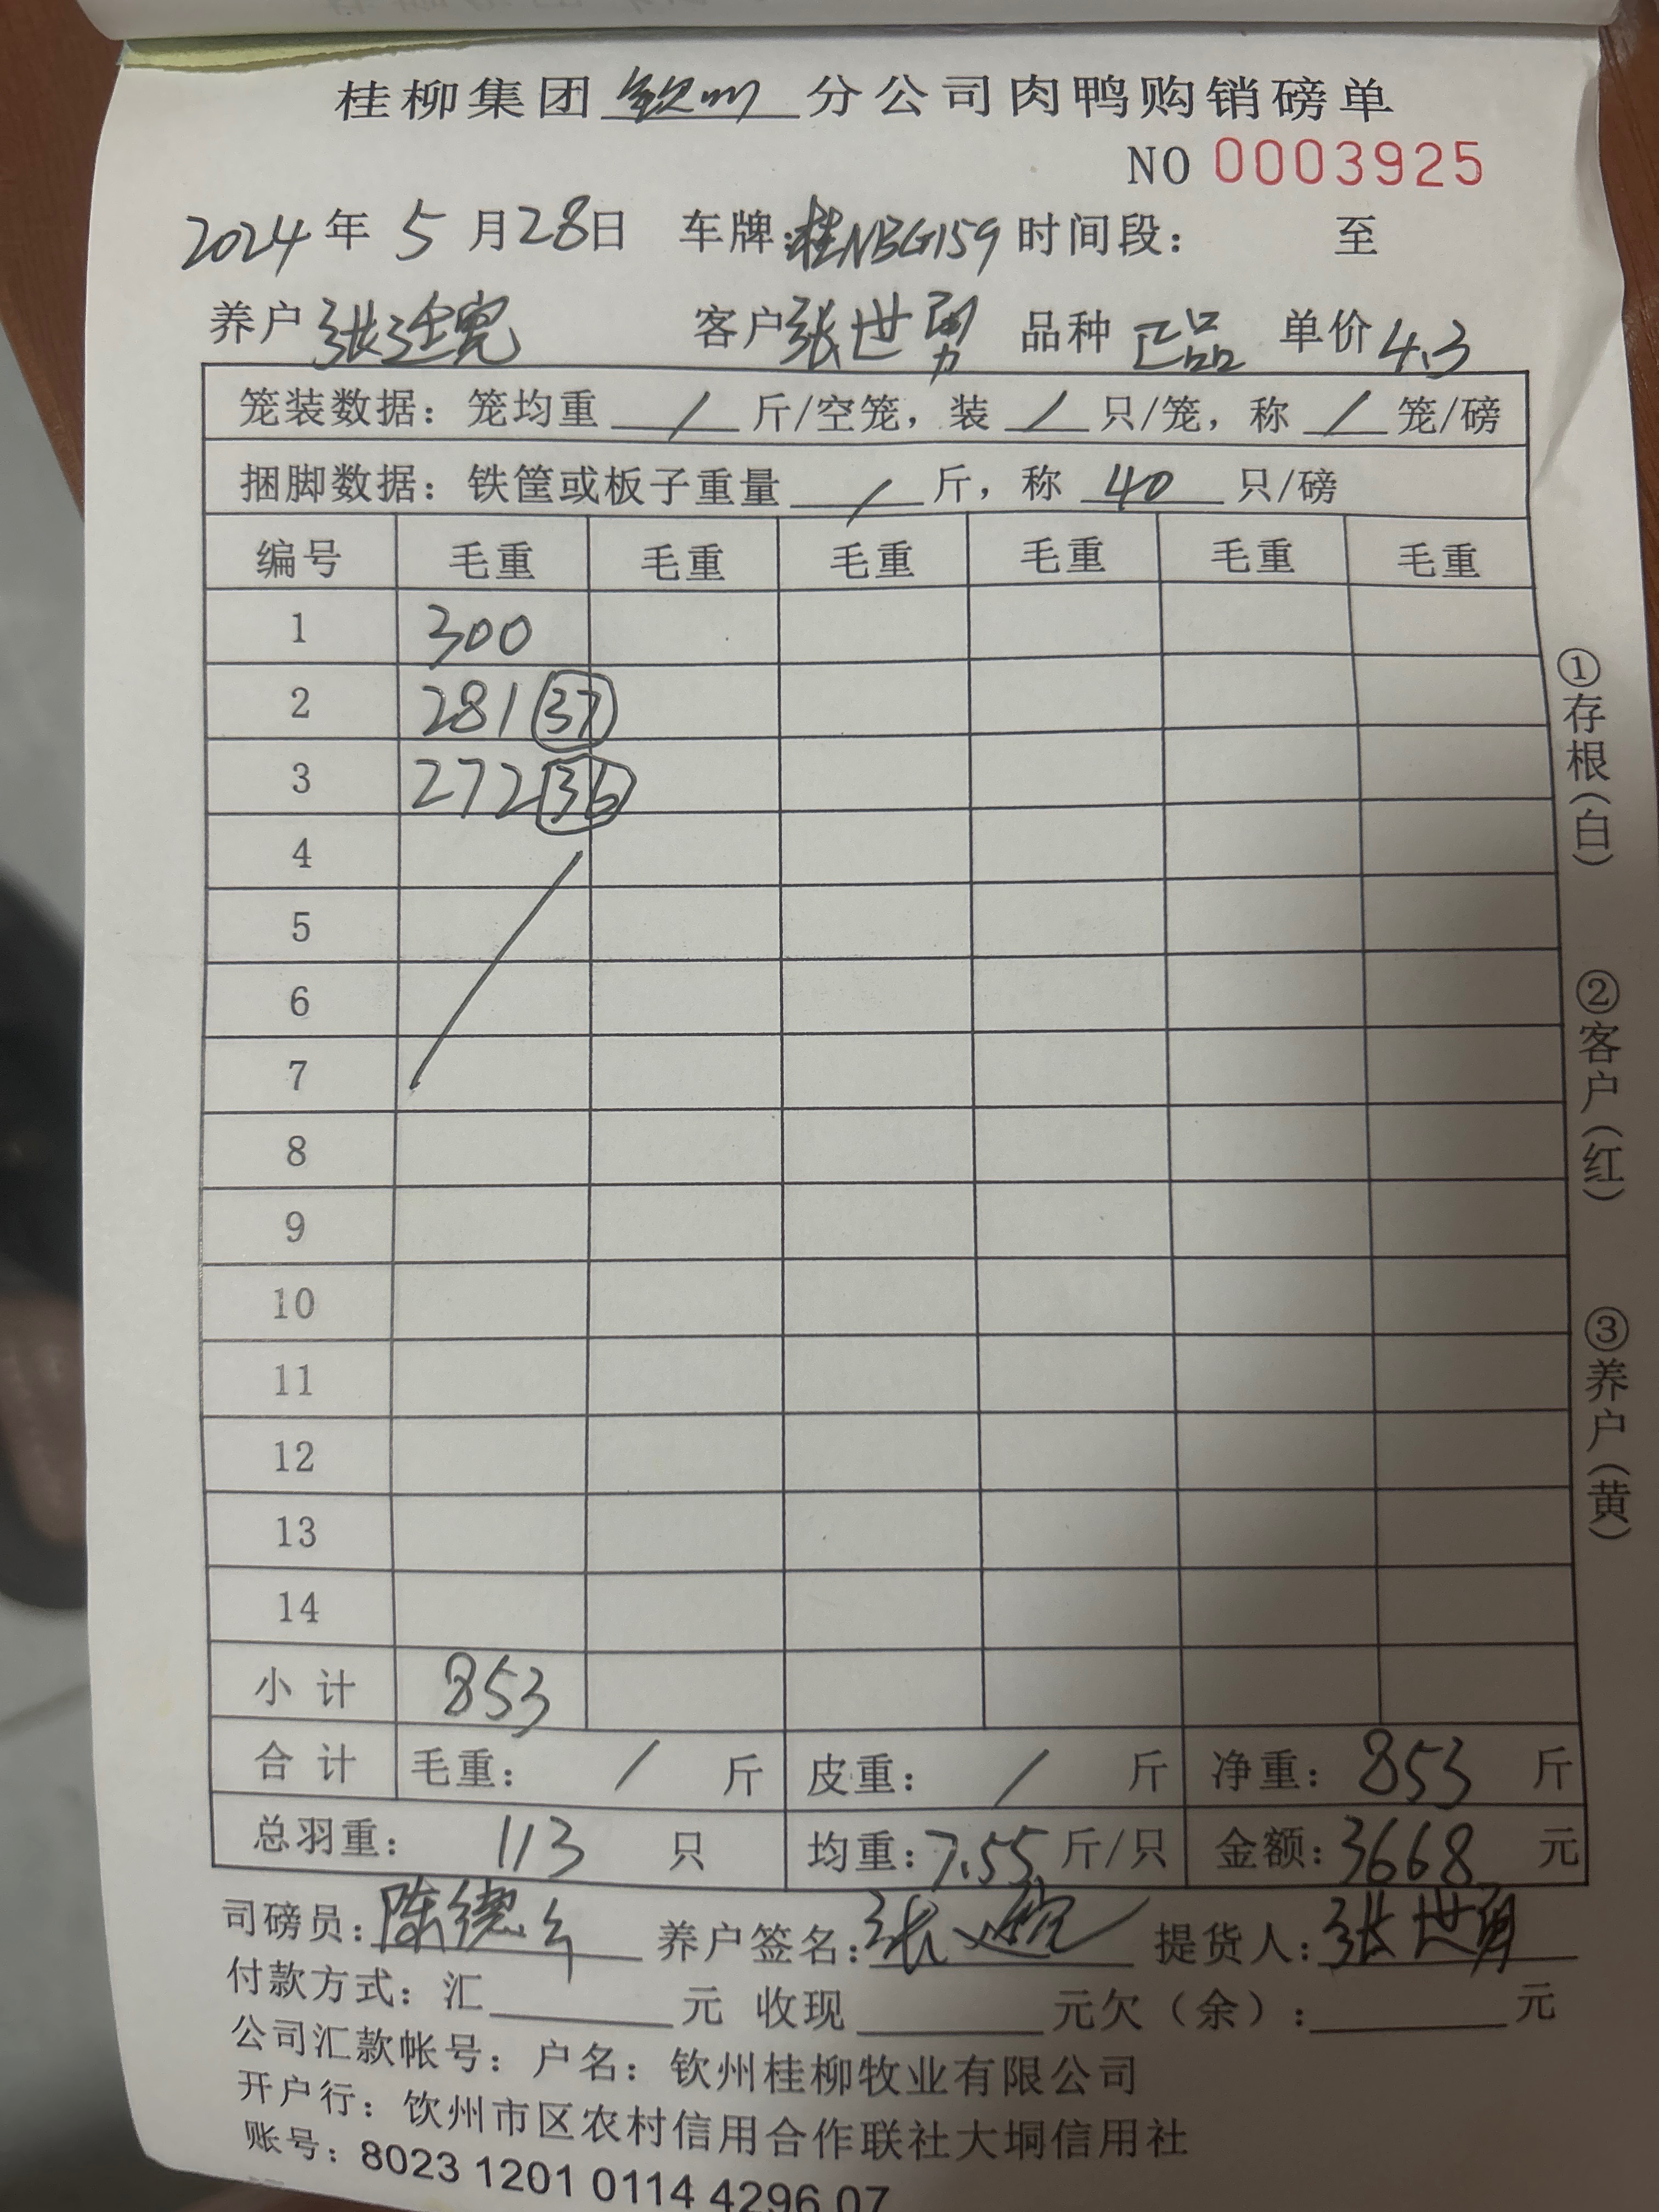 桂柳集团 钦州 分公司肉鸭购销磅单
NO 0003925
2024 年 5 月 28 日 车牌:桂NBG159 时间段: 至
养户 张 客户 张世勇 品种 正品 单价 4.3
笼装数据:笼均重 / 斤/空笼,装 / 只/笼,称 / 笼/磅
捆脚数据:铁筐或板子重量 / 斤,称 40 只/磅
编号 毛重 毛重 毛重 毛重 毛重 毛重
1 300
2 281 37
3 272 36
4
5
6
7
8
9
10
11
12
13
14
小计 853
合计 毛重: / 斤 皮重: / 斤 净重: 853 斤
总羽重: 113 只 均重:7.55 斤/只 金额:3668 元
司磅员:陈德 养户签名:张 提货人:张世勇
付款方式:汇 元 收现 元欠(余): 元
公司汇款帐号:户名:钦州桂柳牧业有限公司
开户行:钦州市区农村信用合作联社大垌信用社
账号:8023 1201 0114 4296 07
①存根(白)
②客户(红)
③养户(黄)